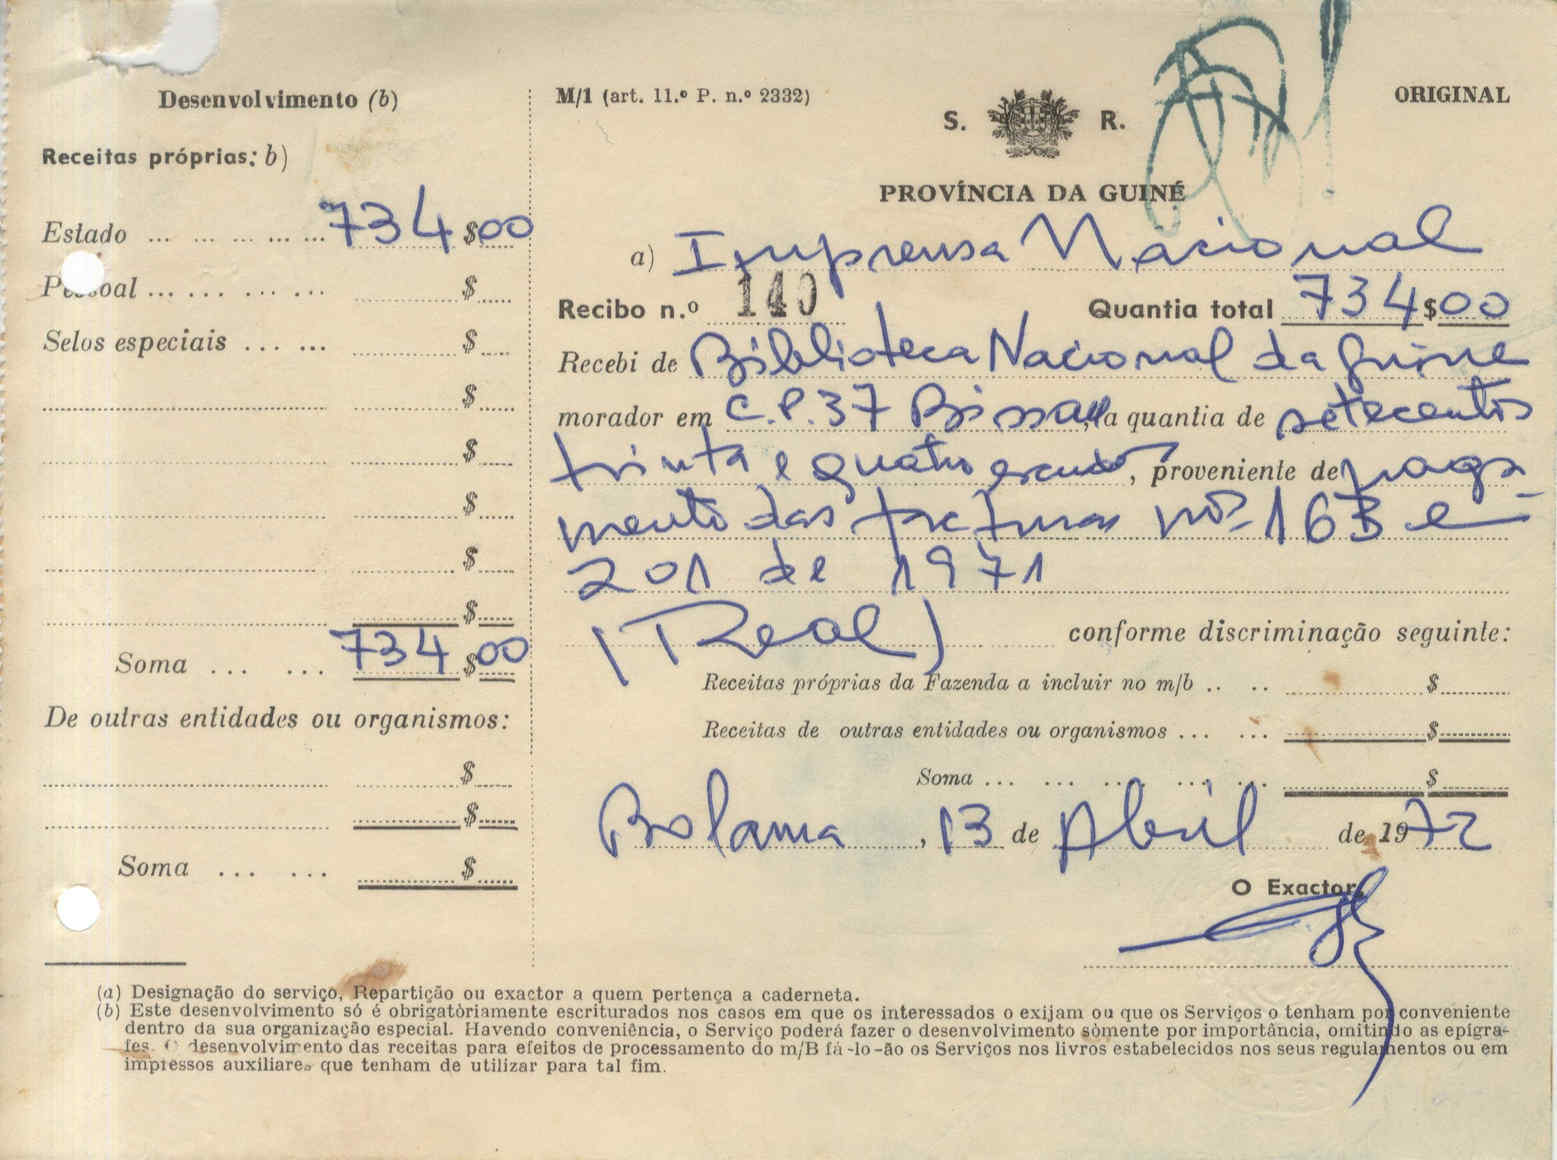 Desenvolvimento (b)
Receitas próprias: b)
Estado ... ... ... ... ... 734$00
Pessoal ... ... ... ... $
Selos especiais ... ... $
$
$
$
$
$
Soma ... ... 734$00
De outras entidades ou organismos:
$
$
Soma ... ... $
M/1 (art. 11.º P. n.º 2332)
ORIGINAL
S. R.
PROVÍNCIA DA GUINÉ
a) Imprensa Nacional
Recibo n.º 140 Quantia total 734$00
Recebi de Biblioteca Nacional da Guiné
morador em C.P. 37 Bissau, a quantia de setecentos
trinta e quatro escudos, proveniente de paga
mento das facturas nºs 163 e
201 de 1971
(Real) conforme discriminação seguinte:
Receitas próprias da Fazenda a incluir no m/b .. .. $
Receitas de outras entidades ou organismos ... ... $
Soma ... ... ... ... ... $
Bolama, 13 de Abril de 1972
O Exactor,
(a) Designação do serviço, Repartição ou exactor a quem pertença a caderneta.
(b) Este desenvolvimento só é obrigatòriamente escriturados nos casos em que os interessados o exijam ou que os Serviços o tenham por conveniente
dentro da sua organização especial. Havendo conveniência, o Serviço poderá fazer o desenvolvimento sòmente por importância, omitindo as epígra-
fes. O desenvolvimento das receitas para efeitos de processamento do m/B fá-lo-ão os Serviços nos livros estabelecidos nos seus regulamentos ou em
impressos auxiliares que tenham de utilizar para tal fim.